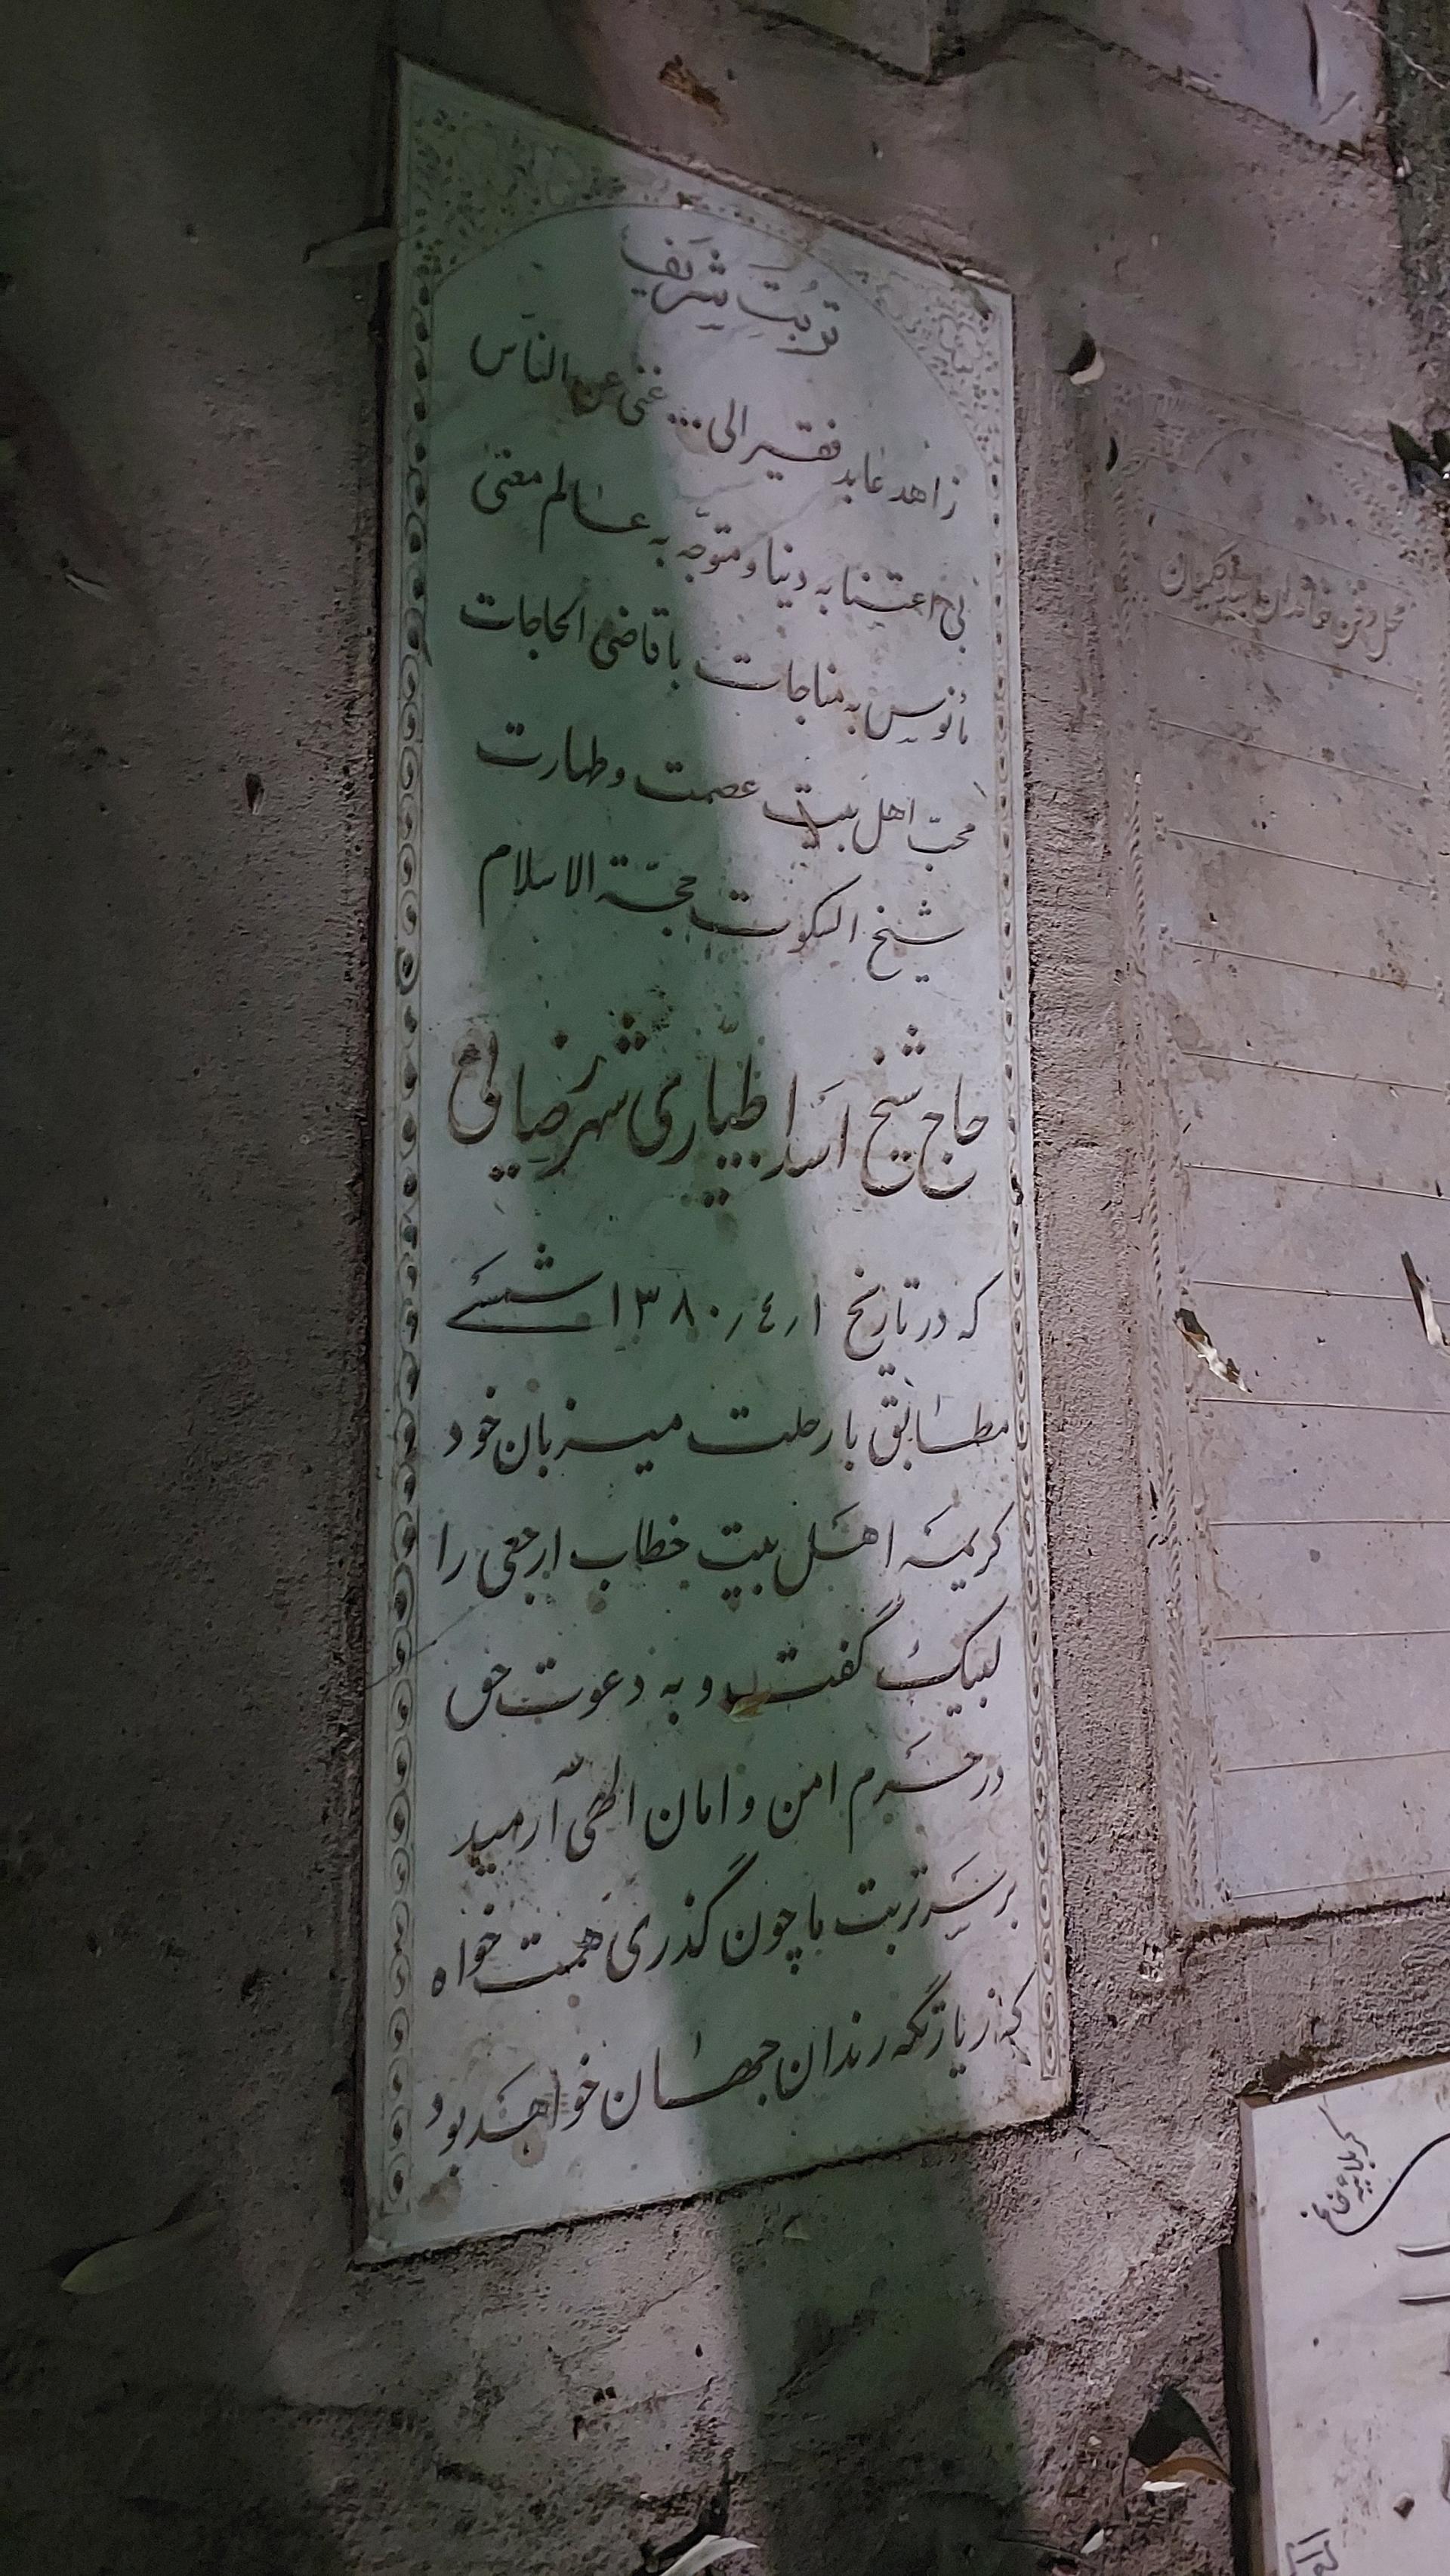 تربت شریف
زاهد عابد فقیر الی... غنی عن الناس
بی اعتنا به دنیا و متوجّه به عالم معنی
مأنوس به مناجات با قاضی الحاجات
محبّ اهل بیت عصمت و طهارت
شیخ السکوت حجّة الاسلام
حاج شیخ اسدا طیّاری شهرضائی
که در تاریخ ۱ر٤ر۱۳۸۰ شمسی
مطابق با رحلت میزبان خود
کریمه اهل بیت خطاب ارجعی را
لبیک گفت و به دعوت حق
در حرم امن و امان الهی آرمید
بر سر تربت ما چون گذری همت خواه
که زیارتگه رندان جهان خواهد بود
محل دفن خاندان